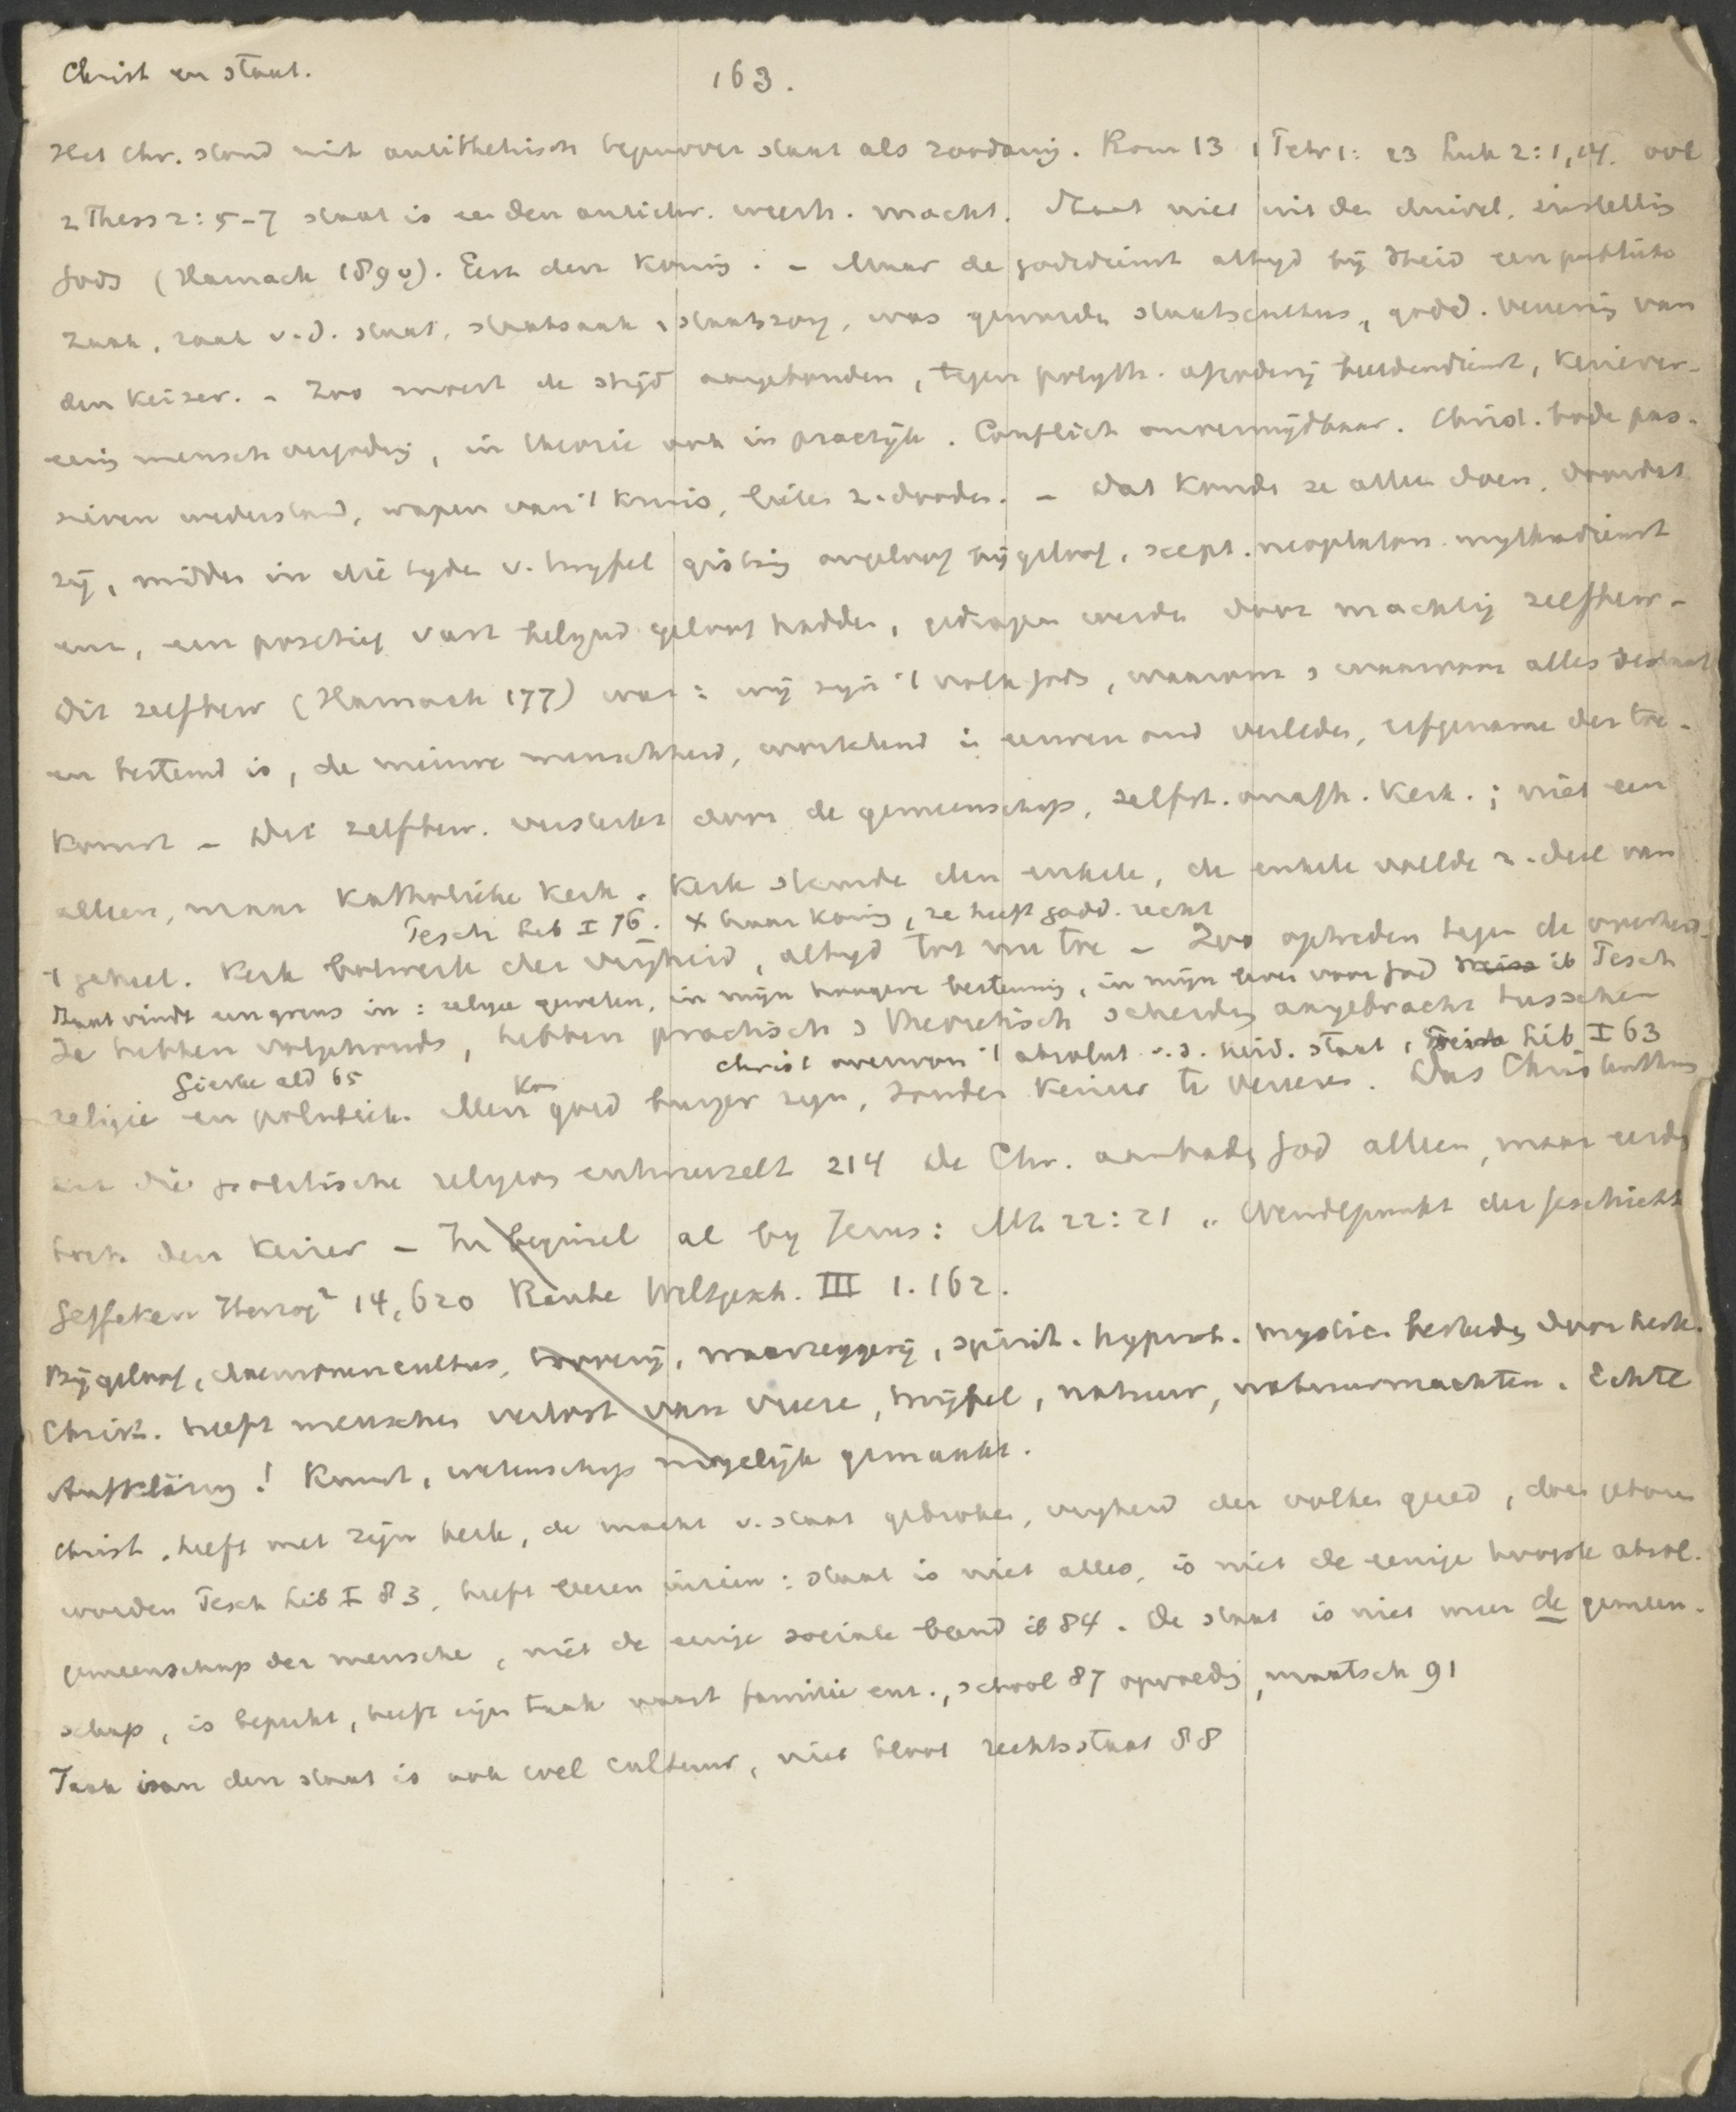 Christ en staat.
163.
Het Chr. stond niet antithetisch tegenover staat als zoodanig. Rom 13 1 Petr 1: 23 Luk 2:1,14. ook
2 Thess 2:5-7 staat is een den antichr. weerh. macht. Staat niet uit den duivel, instelling
Gods (Harnack 189 v). Eert den Koning. - Maar de godsdienst altyd bij Heid een publieke
zaak, zaak v.d. staat, staatszaak, staatszorg, was geworden staatscultus, godd. vereering van
den Keizer. - Zoo moest de strijd aangebonden, tegen polyth. afgoderij beeldendienst, Keizerver-
eering menschvergoding, in theorie ook in practijk. Conflict onvermijdbaar. Christ. bode pas-
sieven wederstand, wapen van 't kruis, lieten z. dooden. - Dat konde ze alleen doen, doordat
zij, midden in die tyden v. twyfel gisting ongeloof bijgeloof, scept. neoplaton. mythradienst
enz, een positief vast belynd geloof hadden, gedragen werden door machtig zelfbew-
Dit zelfbew (Harnack 177) was: wij zijn 't volk Gods, waarvoor en waarom alles bestaat
en bestemd is, de nieuwe menschheid, wortelend in eeuwenoud verleden, erfgename der toe-
komst - Dit zelfbew. versterkt door de gemeenschap, zelfst. onafh. Kerk.; niet een
alleen, maar Katholieke Kerk. Kerk steunde den enkele, de enkele voelde z. deel van
Pesch Lib I 76. x haar Koning, ze heeft godd. recht
't geheel. Kerk bolwerk der vrijheid, altyd tot nu toe - Zoo optreden tegen de overheid-
Staat vindt een grens in: religie geweten, in mijn hoogere bestemming, in mijn leven voor God ib Pesch
Ze hebben volgehouden, hebben practisch en theoretisch scheiding aangebracht tusschen
Christ overwon 't absolut. v.d. heid. staat, Pesch Lib I 63
Gierke ald 65
religie en politiek. Men Kon goed burger zijn, zonder Keizer te vereeren. Das Christenthum
hat die politische religion entwurzelt 214 De Chr. aanbaden God alleen, maar eerden
toch den Keizer - In beginsel al by Jezus: Mt. 22:21 „Wendepunkt der Geschichte
Geffcken Herzog² 14,620 Ranke Weltgesch. III 1. 162.
Bijgeloof, daemonencultus, tooverij, waarzeggerij, spirit. hypnot. mystic. bestreden door kerk.
Christ. heeft menschen verlost van vreeze, twijfel, natuur, natuurmachten. Echte
Aufklärung! Kunst, wetenschap mogelijk gemaakt.
Christ. heeft met zijn kerk, de macht v. staat gebroken, vryheid der volken gered, doen geboren
worden Pesch Lib I 83, heeft leeren inzien: staat is niet alles, is niet de eenige hoogste absol.
gemeenschap der menschen, niet de eenige sociale band ib 84. De staat is niet meer de gemeen-
schap, is beperkt, heeft eigen taak naast familie enz., school 87 opvoeding, maatsch 91
Taak van den staat is ook wel cultuur, niet bloot rechtsstaat 88